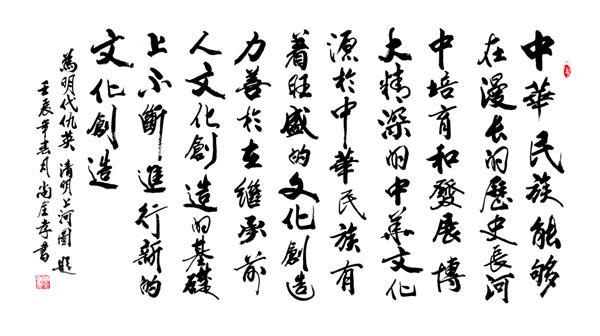 中華民族能够
在漫长的歷史長河
中培育和發展博
大精深的中華文化
源於中華民族有
着旺盛的文化創造
力善於在繼承前
人文化創造的基礎
上不斷進行新的
文化創造
為明代仇英清明上河圖題
壬辰年春月尚金孝書